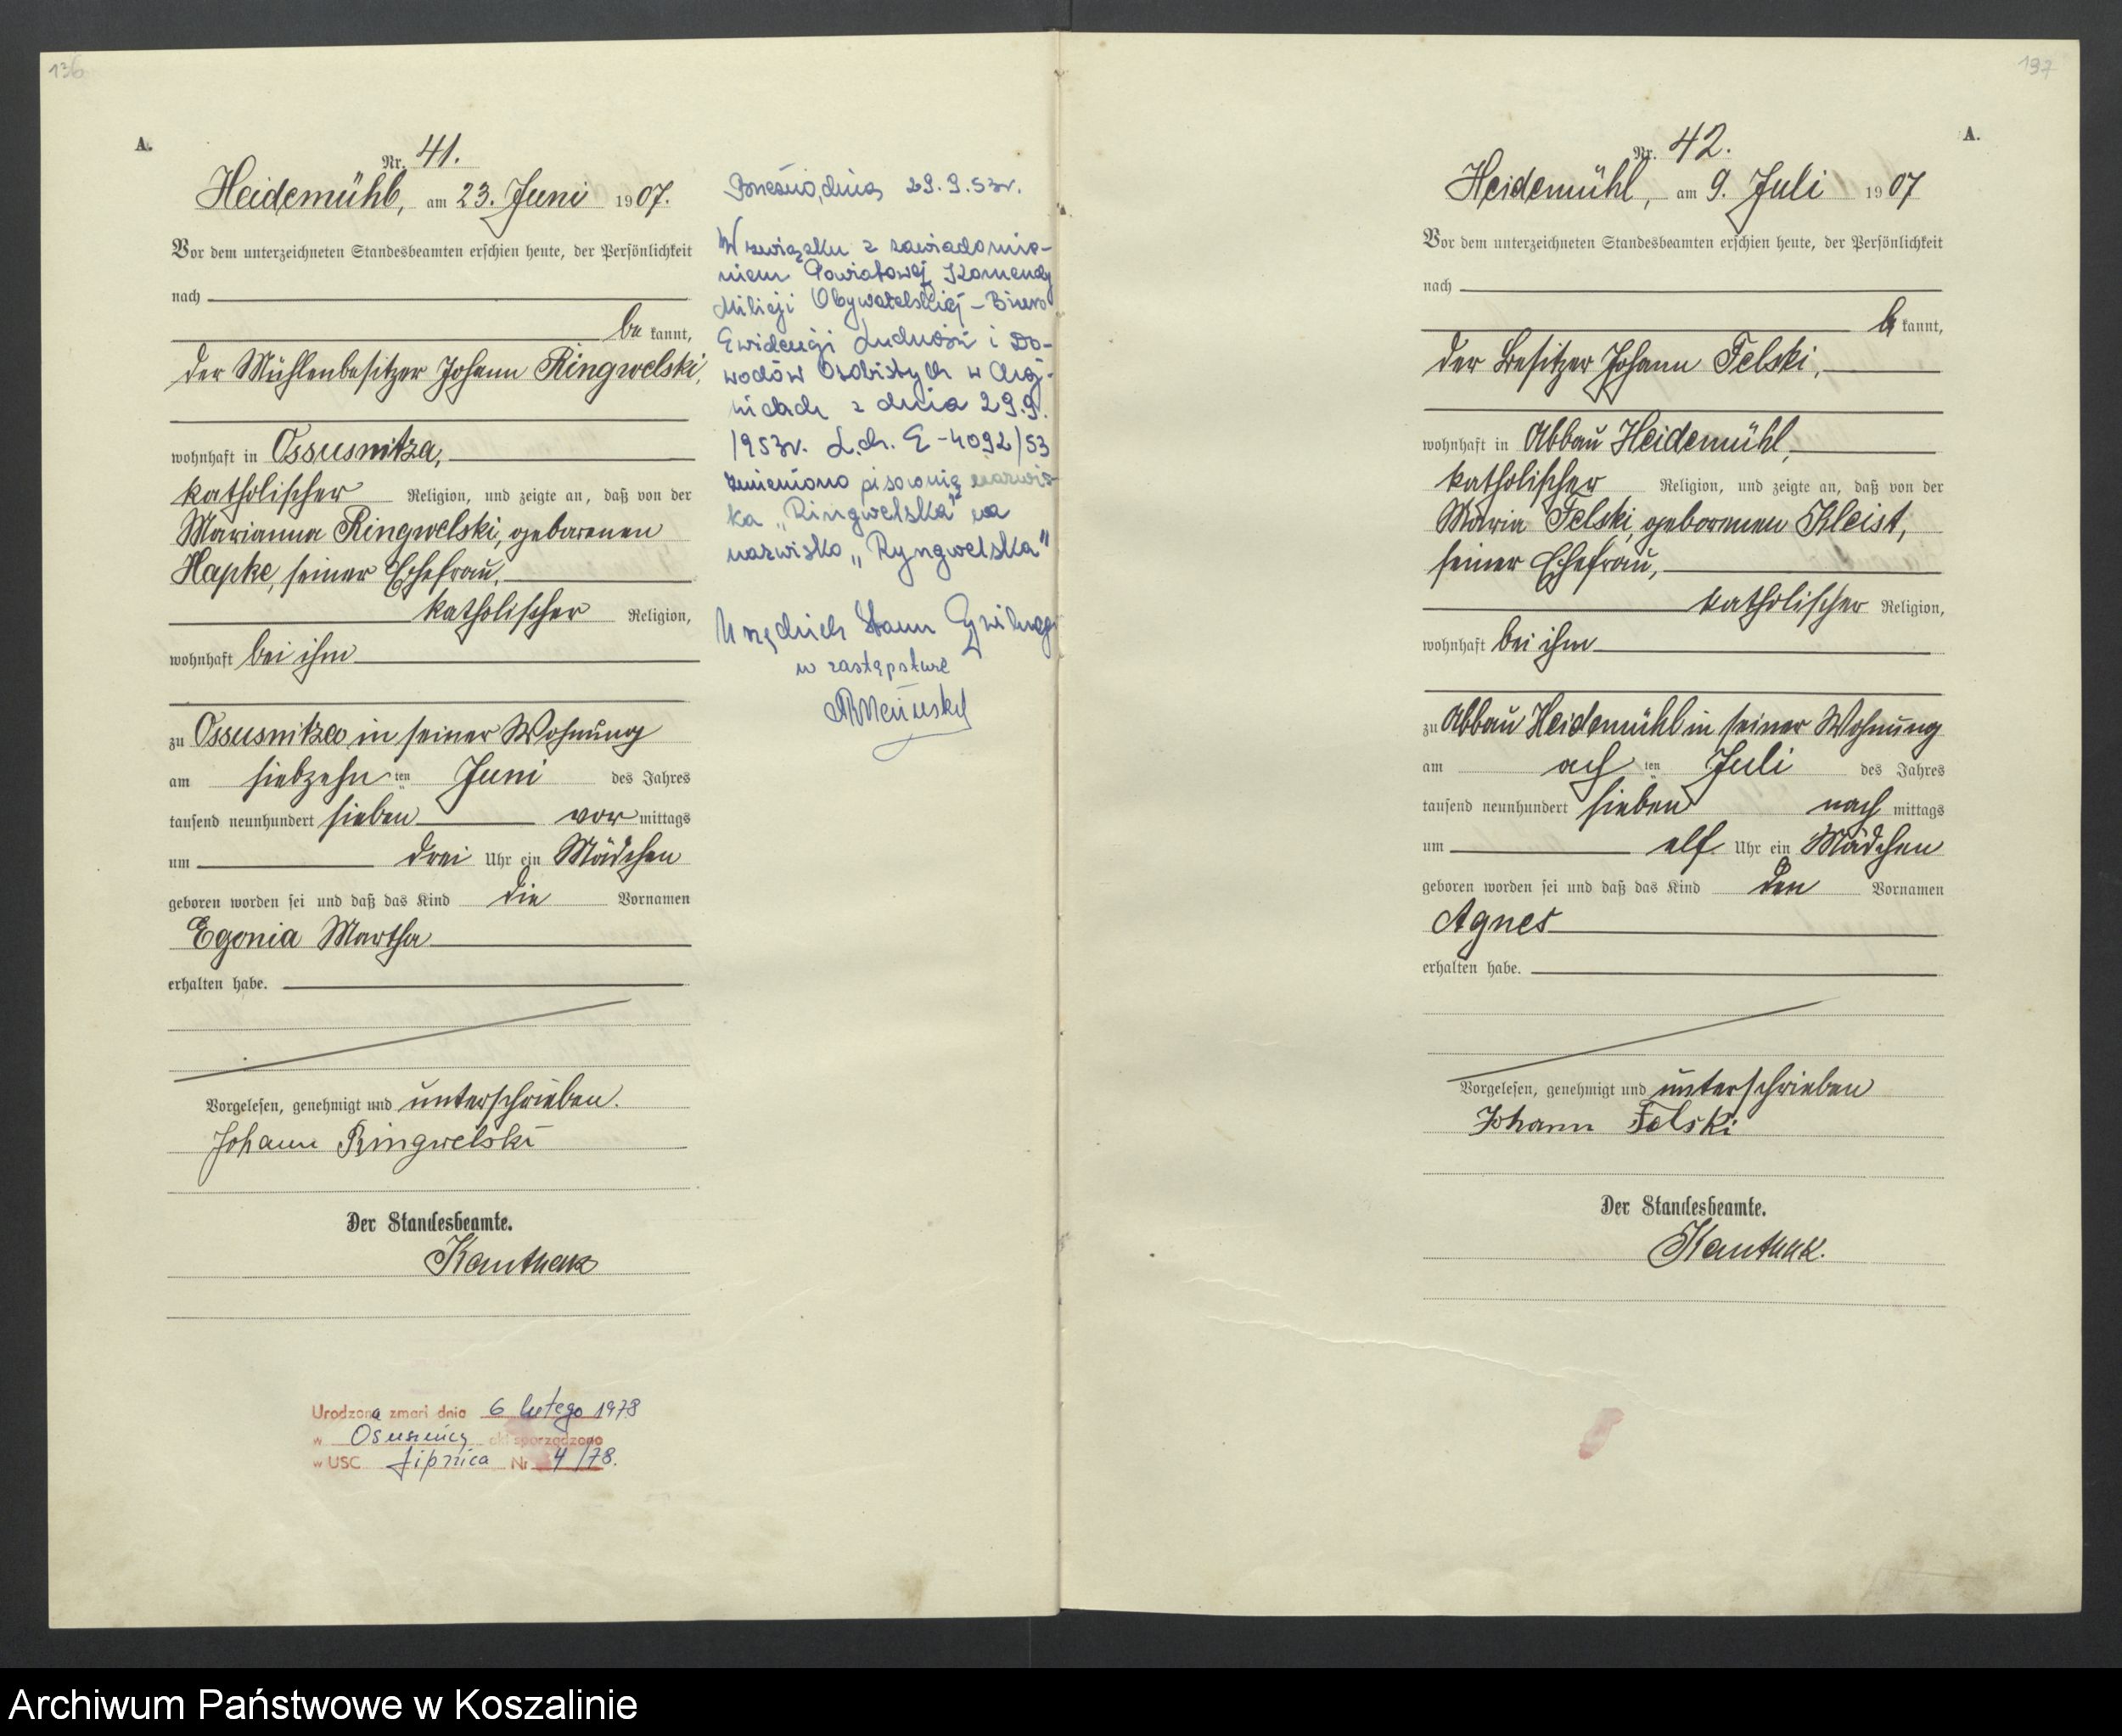 136
A.
Nr. 41.
Heidemühl, am 23. Juni 1907.
Vor dem unterzeichneten Standesbeamten erschien heute, der Persönlichkeit
nach
be kannt,
der Mühlenbesitzer Johann Ringwelski,
wohnhaft in Ossusnitza,
katholischer Religion, und zeigte an, daß von der
Marianna Ringwelski, geborenen
Hapke, seiner Ehefrau,
katholischer Religion,
wohnhaft bei ihm
zu Ossusnitza in seiner Wohnung
am siebzehn ten Juni des Jahres
tausend neunhundert sieben vor mittags
um drei Uhr ein Mädchen
geboren worden sei und daß das Kind die Vornamen
Egonia Martha
erhalten habe.
Vorgelesen, genehmigt und unterschrieben.
Johann Ringwelski
Der Standesbeamte.
Kanthak
Urodzona zmarł dnia 6 lutego 1978
w Osusznicy akt sporządzono
w USC Lipnica Nr 4/78.
dnia 29.9.53r.
W związku z zawiadomie-
niem Powiatowej Komendy
Milicji Obywatelskiej - Biuro
Ewidencji Ludności i Do-
wodów Osobistych w Choj-
nicach z dnia 29.9.
1953r. L.ch. E-4092/53
zmieniono pisownię nazwis-
ka „Ringwelska" na
nazwisko „Ryngwelska"
Urzędnik Stanu Cywilnego
w zastępstwie
137
A.
Nr. 42.
Heidemühl, am 9. Juli 1907
Vor dem unterzeichneten Standesbeamten erschien heute, der Persönlichkeit
nach
be kannt,
der Besitzer Johann Felski,
wohnhaft in Abbau Heidemühl,
katholischer Religion, und zeigte an, daß von der
Maria Felski, geborenen Kleist,
seiner Ehefrau,
katholischer Religion,
wohnhaft bei ihm
zu Abbau Heidemühl in seiner Wohnung
am ach ten Juli des Jahres
tausend neunhundert sieben nach mittags
um elf Uhr ein Mädchen
geboren worden sei und daß das Kind den Vornamen
Agnes
erhalten habe.
Vorgelesen, genehmigt und unterschrieben
Johann Felski
Der Standesbeamte.
Kanthak.
Archiwum Państwowe w Koszalinie